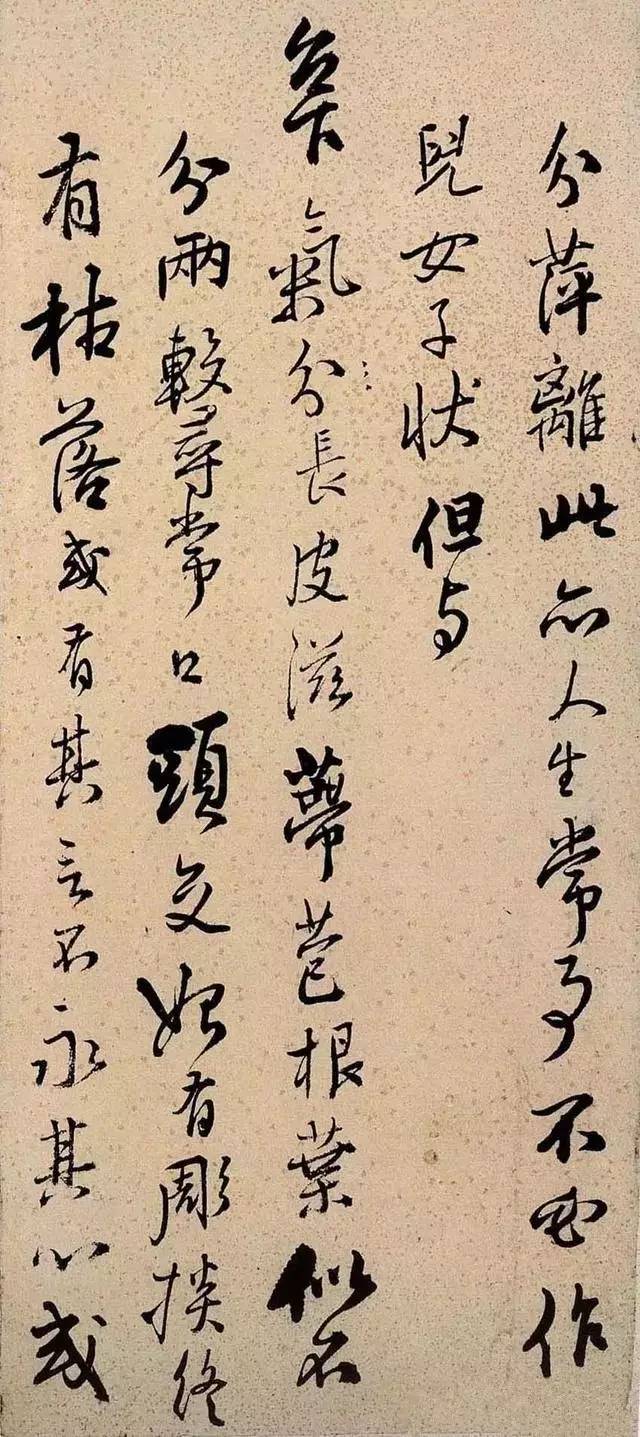 分萍離此亦人生常事不作
兒女子狀但与
台下氣分長皮滋蔕苞根葉似不
分兩較尋常口頭交始有彫掞終
有枯落或有其言不永其心或